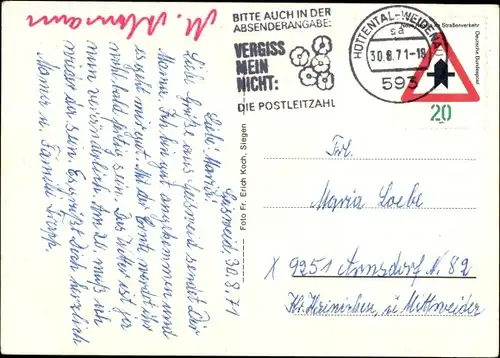 M. Altmann
BITTE AUCH IN DER
ABSENDERANGABE:
VERGISS
MEIN
NICHT:
DIE POSTLEITZAHL
HÜTTENTAL-WEIDENAU
sa
30.8.71-18
593
Neue Regeln im Straßenverkehr
Deutsche Bundespost
20
Foto Fr. Erich Koch, Siegen
30.8.71
Liebe Maria!
Liebe Grüße aus sendet Dir
Mama. Bin gut angekommen und
es geht mir gut. Mit der Ernte werdet ihr
wohl bald fertig sein. Das Wetter ist ja
nun veränderlich. Am 20. muß ich
wieder da sein. Es grüßt Dich herzlich
Mama u. Familie
Frl.
Maria Loebe
X 9251 Arnsdorf N. 82
Kr. Hainichen, ü. Mittweida